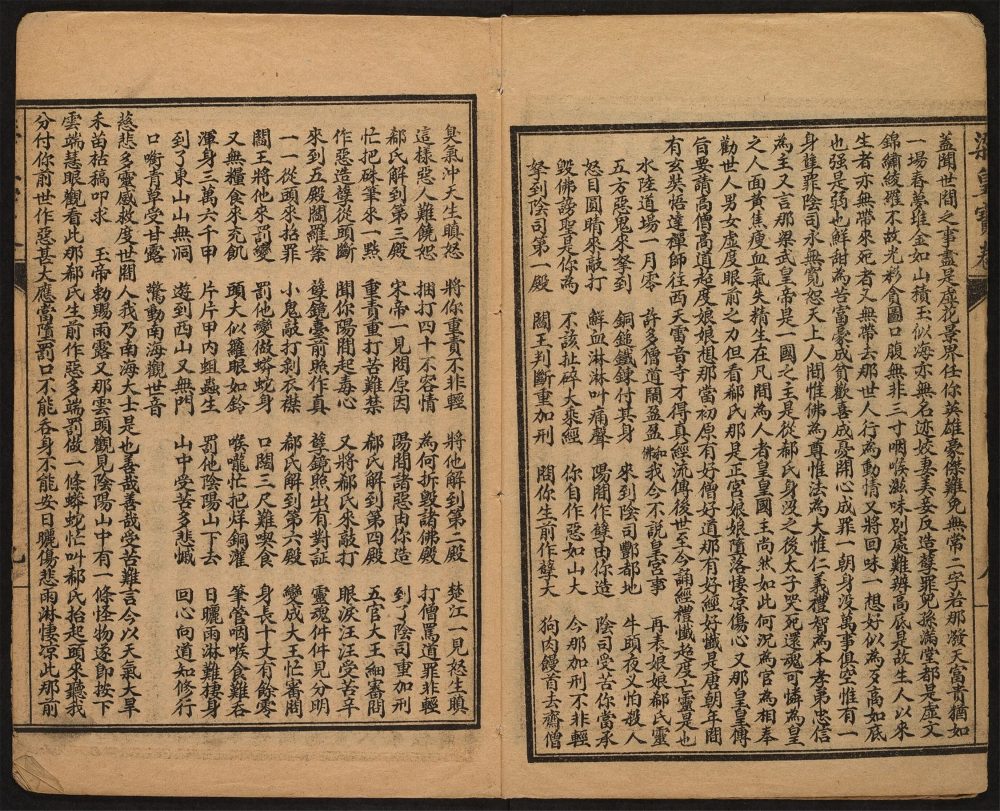 梁皇寶卷
八
蓋聞世間之事盡是虛花景界任你英雄豪傑難免無常二字若那潑天富貴猶如
一塲春夢堆金如山積玉似海亦無名迹姣妻美妾反造孽罪兒孫滿堂都是虛文
錦綉綾羅不故光彩貪圖口腹無非三寸咽喉滋味別處難辨高底是故生人以來
生者亦無帶來死者又無帶去那世人行為動情又將回味一想好似為多高如底
也强是弱也鮮甜為苦富豪成貧歡喜成憂閑心成罪一朝身没萬事俱空惟有一
身孽罪陰司永無寬恕天上人間惟佛為尊惟法為大惟仁義禮智為本孝弟忠信
為主又言那梁武皇帝是一國之主是從郗氏身没之後太子哭死還魂可憐為皇
之人面黃焦瘦血氣失精生在凡間為人者皇皇國王尚然如此何況為官為相奉
勸世人男女虛度眼前之力但看郗氏那是正宮娘娘墮落悽凉傷心又那皇皇傳
旨要請高僧高道超度娘娘想那當初原有好僧好道那有好經好懺是唐朝年間
有玄奘悟達禪師往西天雷音寺才得真經流傳後世至今誦經禮懺超度亡靈是也
水陸道塲一月零 許多僧道鬧盈盈 我今不說皇宮事 再表娘娘郗氏靈
五方惡鬼來拏到 銅鎚鐵鍊付其身 來到陰司酆都地 牛頭夜叉怕殺人
怒目圓睛來敲打 鮮血淋淋叫痛聲 陽間作孽由你造 陰司受苦你當承
毀佛謗聖是你為 不該扯碎大乘經 你自作惡如山大 今那加刑不非輕
拏到陰司第一殿 閻王判斷重加刑 問你生前作孽大 狗肉饅首去齋僧
臭氣冲天生瞋怒 將你重責不非輕 將他解到第二殿 楚江一見怒生瞋
這樣惡人難饒恕 捆打四十不容情 為何拆毀諸佛殿 打僧罵道罪非輕
郗氏解到第三殿 宋帝一見問原因 陽間諸惡由你造 到了陰司重加刑
忙把硃筆來一㸃 重責重打苦難禁 郗氏解到第四殿 五官大王細審問
作惡造孽從頭斷 聞你陽間起毒心 又將郗氏來敲打 眼淚汪汪受苦辛
來到五殿閻羅案 孽鏡臺前照作真 孽鏡照出有對証 靈魂件件見分明
一一從頭來招罪 小鬼敲打剥衣襟 郗氏解到第六殿 變成大王忙審問
閻王將他來罰變 罰他變做蟒蛇身 口闊三尺難喫食 身長十丈有餘零
又無糧食來充飢 頭大似籮眼如鈴 喉嚨忙把烊銅灌 筆管咽喉食難吞
渾身三萬六千甲 片片甲内蛆蟲生 罰他陰陽山下去 日曬雨淋難棲身
到了東山山無洞 遊到西山又無門 山中受苦多悲慽 回心向道如修行
口啣青草受甘露 驚動南海觀世音
慈悲多靈感救度世間人我乃南海大士是也善哉善哉受苦難言今以天氣大旱
禾苗枯稿叩求 玉帝勅賜雨露又那雲頭觀見陰陽山中有一條怪物遂即按下
雲端慧眼觀看此那郗氏生前作惡多端罰做一條蟒蛇忙叫郗氏抬起頭來聽我
分付你前世作惡甚大應當墮罰口不能吞身不能安日曬傷悲雨淋悽凉此那前
九